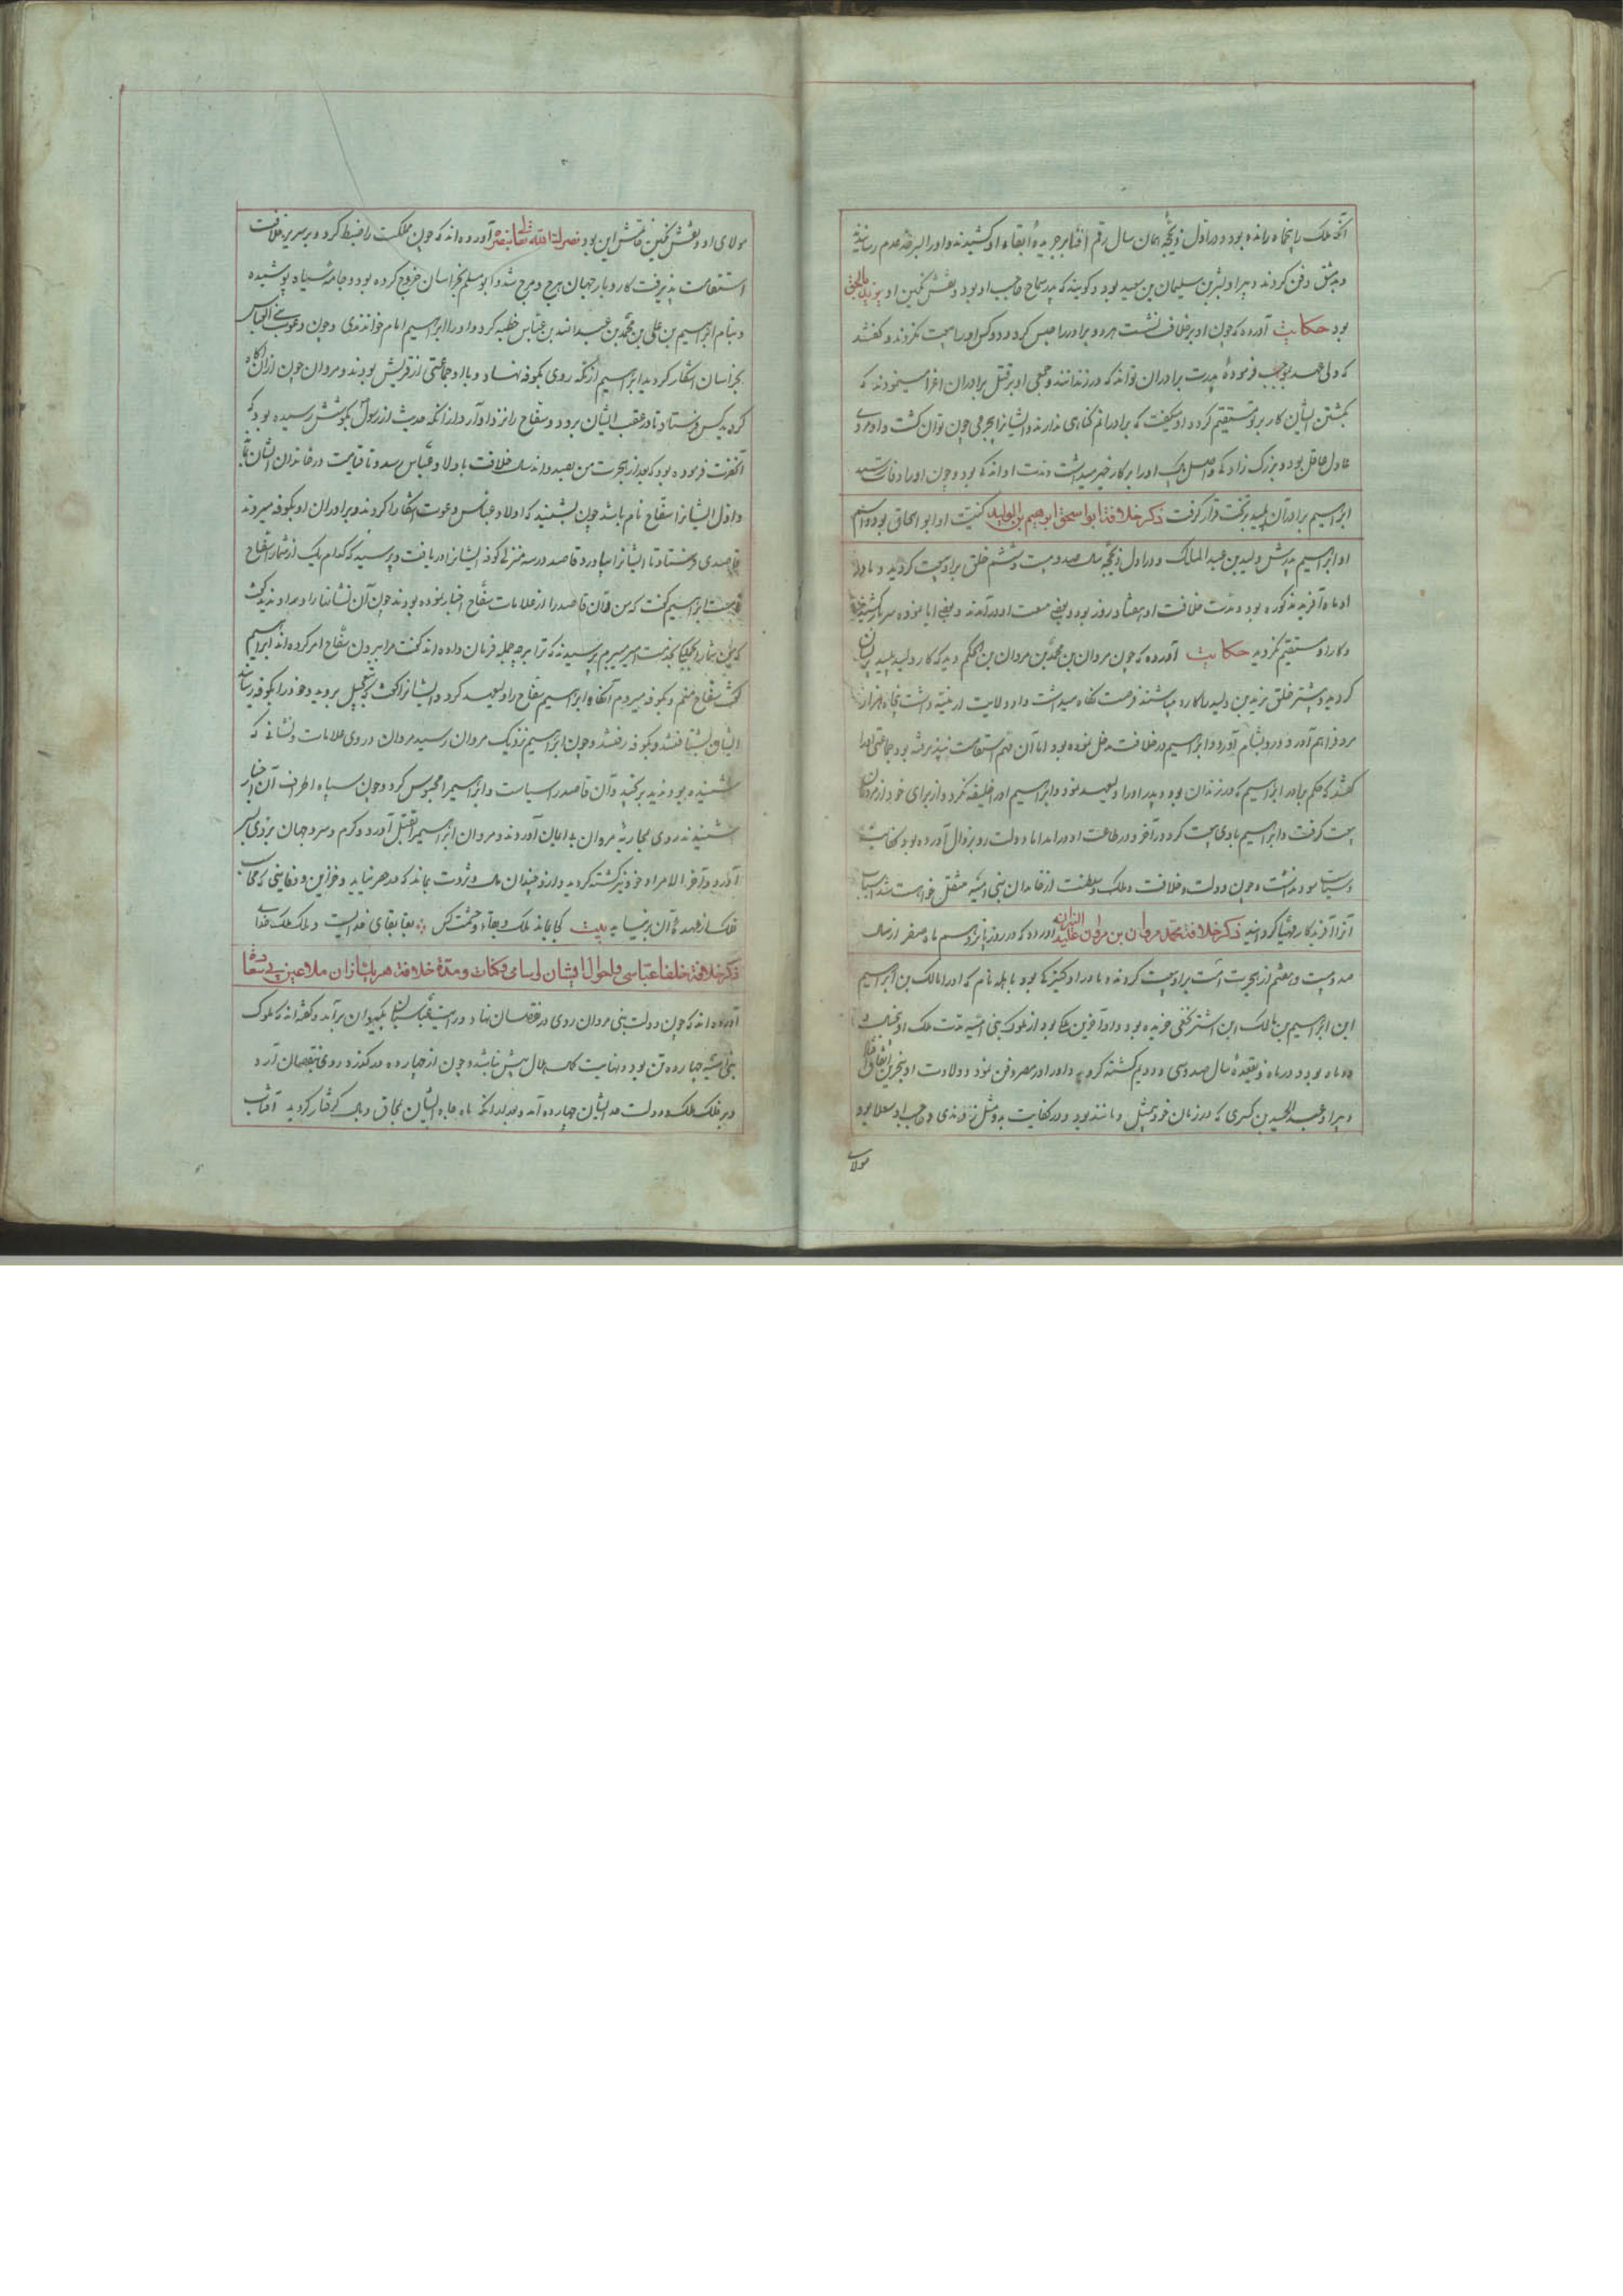 آنکه ملک را پنجاه رانده بود و در اول ذیحجهٔ همان سال رقم افنا بر جریدهٔ ابقاء او کشیدند و او را بسر حد عدم رسانیدند
و بدمشق دفن کردند دبیر او بشر بن سلیمان بن سعید بود و کویند که پدر سماح حاجب او بود و نقش نکین او یزید بالحق
بود حکایت آورده که چون او بر خلافت نشست هر دو برادر را حبس کرد و دو کس او را بیعت نکردند و کفتند
که ولی عهد بموجب فرمودهٔ پدرت برادران تواند که در زندانند و جمعی او بر قتل برادران اغرا مینمودند که
بکشتن ایشان کار بر تو مستقیم کردد او میکفت که برادرانم کناهی ندارند و ایشانرا بجرمی چون توان کشت و او مردی
عادل عاقل بود و بزرک زاد که و اصل پاک او را بر کار خیر میداشت و مدت او اندک بود و چون او را وفات رسید
ابراهیم برادر آن پلید بر تخت قرار کرفت ذکر خلافة ابو اسحق ابرهیم بن الولید کنیت او ابو اسحاق بود و اسم
او ابراهیم پدرش ولید بن عبد الملک و در اول ذیحجه سال صد و بیست و ششم خلق بر او بیعت کردند و مادر
او ماه آفرید مذکوره بود و مدت خلافت او هفتاد روز بود و بعضی بیعت او در آمدند و بعضی ابا نموده سر باز کشیدند
و کار او مستقیم نکردید حکایت آورده که چون مروان بن محمد بن مروان بن الحکم دید که کار ولید پلید پریشان
کردید و بیشتر خلق یزید بن ولید را کاره میباشتند فرصت نکاه میداشت و او ولایت ارمنیه داشت پنجاه هزار
مرد فراهم آورد و رو بشام آورد و ابراهیم در خلافت مدخل نموده بود اما آن مهم استقامت نپذیرفته بود جماعتی او را
کفتند که حکم برادر ابراهیم که در زندان بود و پدر او را ولیعهد نمود و ابراهیم او را خلیفه نکرد و از برای خود از مردمان
بیعت کرفت و ابراهیم با وی بیعت کرد و در آخر در طاعت او در آمد اما دولت رو بزوال آورده بود کفایت
و سیاست سود نداشت و چون دولت و خلافت و ملک و سلطنت از خاندان بنی امیه منتقل خواست شد اسباب
آنرا آفریدکار مهیا کردانید ذکر خلافة محمد مروان بن مروان علیه النیران آورده که در روز پانزدهم ماه صفر از سال
صد و بیست و هفتم از هجرت امت بر او بیعت کردند و مادر او کنیزکی بود بابله نام که او را مالک بن ابراهیم
ابن ابراهیم بن مالک ابن اشتر نخعی خریده بود و او آخرین ملکی بود از ملوک بنی امیه مدت ملک او پنجسال و
ده ماه بود و در ماه ذیقعدهٔ سال صد و سی و دویم کشته کردید و او را در مصر دفن نمود و ولادت او بجزیره اتفاق افتاد
دبیر او عبد الحمید بن کسری که در زمان خود بیمثل و مانند بود و در کفایت بدو مثل زدندی و حاجب او سقلا بود
مولای
مولای او و نقش نکین خاتمش این بود نصر لنا الله تعالی بنصره آورده‌اند که چون مملکت را ضبط کرد و بر سریر خلافت
استقامت پذیرفت کار و بار جهان هرج و مرج شد و ابو مسلم بخراسان خروج کرده بود و جامه سیاه پوشیده
و بنام ابراهیم بن علی بن محمد بن عبد الله بن عباس خطبه کرد و او را ابراهیم امام خواندندی و چون دعوت بنی العباس
بخراسان آشکار کردید ابراهیم از مکه روی بکوفه نهاد و با او جماعتی از قریش بودند و مروان چون ازان آکاه
کردید کس فرستاد تا در عقب ایشان برود و سفاح را نزد او آرد از انکه حدیث از رسول بکوشش رسیده بود که
آنحضرت فرموده بود که بعد از هجرت من بصد و اند سال خلافت باولاد عباس رسد و تا قیامت در خاندان ایشان باقی
و اول ایشانرا سفاح نام باشد چون بشنید که اولاد عباس دعوت آشکارا کردند و برادران او بکوفه میروند
قاصدی فرستاد تا ایشانرا بیاورد قاصد در سه منزلی کوفه ایشانرا دریافت و پرسید که کدام یک از شما سفاح
هست ابراهیم کفت که من فلان قاصد را از علامات سفاح اخبار نموده بودند چون آن نشانها را در او ندید کفت
که من شما را بجنک بخدمت امیر میبرم پرسیدند که ترا بر چه جمله فرمان داده‌اند کفت مرا ببردن سفاح امر کرده‌اند ابراهیم
کفت سفاح منم و بکوفه میروم آنکاه ابراهیم سفاح را ولیعهد کرد و ایشانرا کفت که بتعجیل بروید و خود را بکوفه رسانید
ایشان بشتافتند و بکوفه رفتند و چون ابراهیم نزدیک مروان رسید مروان در وی علامات و نشانی که
شنیده بود ندید برنجید و آن قاصد را سیاست و ابراهیم را محبوس کرد و چون سپاه اطراف آن اخبار
شنیدند روی بمحاربه مروان بد ایمان آوردند و مروان ابراهیم را بقتل آورد و کرم و سرد جهان بر وی بسر
آورد و آخر الامر او خود نیز کشته کردید و از او چندان مال و ثروت بماند که در حصر نیاید و خزاین و دفاینی که محاسب
فلک از عهدهٔ آن بر نیاید بیت کجا بماند ملک و بقا و حشمت کس ؞ بقا بقای خدایست و ملک ملک خدای
ذکر خلافة خلفاء عباسی و احوال ایشان و اسامی و کنات و مدة خلافة هر یک از ان ملاعین بی سعادة
آورده‌اند که چون دولت بنی مروان روی در نقصان نهاد و رایت عباسیان بکیوان برآمد و کفته‌اند که ملوک
بنی امیه چهارده تن بود و نهایت کمال هلال بیش نباشد و چون از چهارده در کذرد روی بنقصان آرد
و بر فلک ملک و دولت عد ایشان چهارده آمد و بعد از انکه ماه جاه ایشان بمحاق و بال کرفتار کردید آفتاب